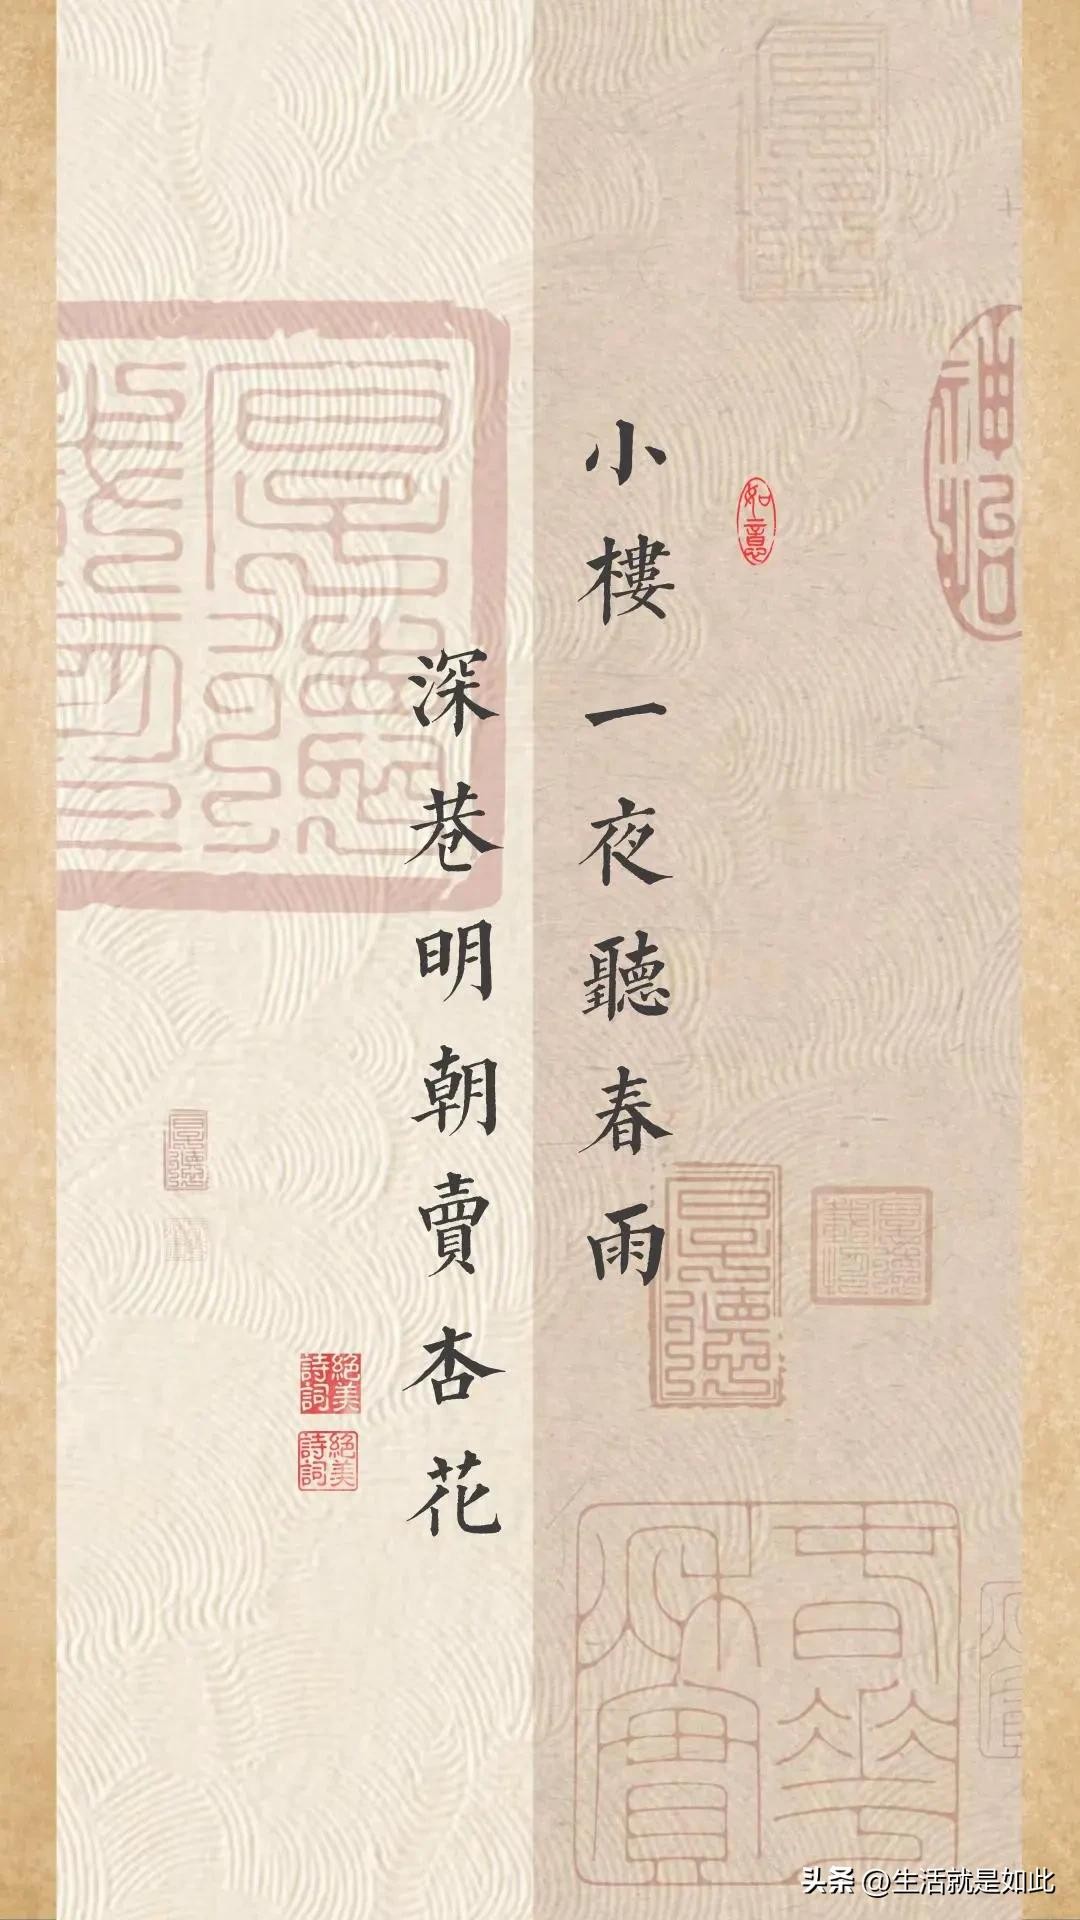 小樓一夜聽春雨
深巷明朝賣杏花
如意
絕美詩詞
絕美詩詞
神怡
春華秋實
头条 @生活就是如此